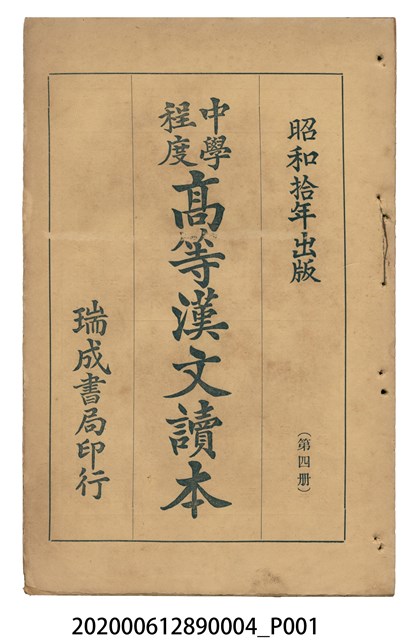 昭和拾年出版
（第四册）
中學
程度
高等漢文讀本
瑞成書局印行
202000612890004_P001